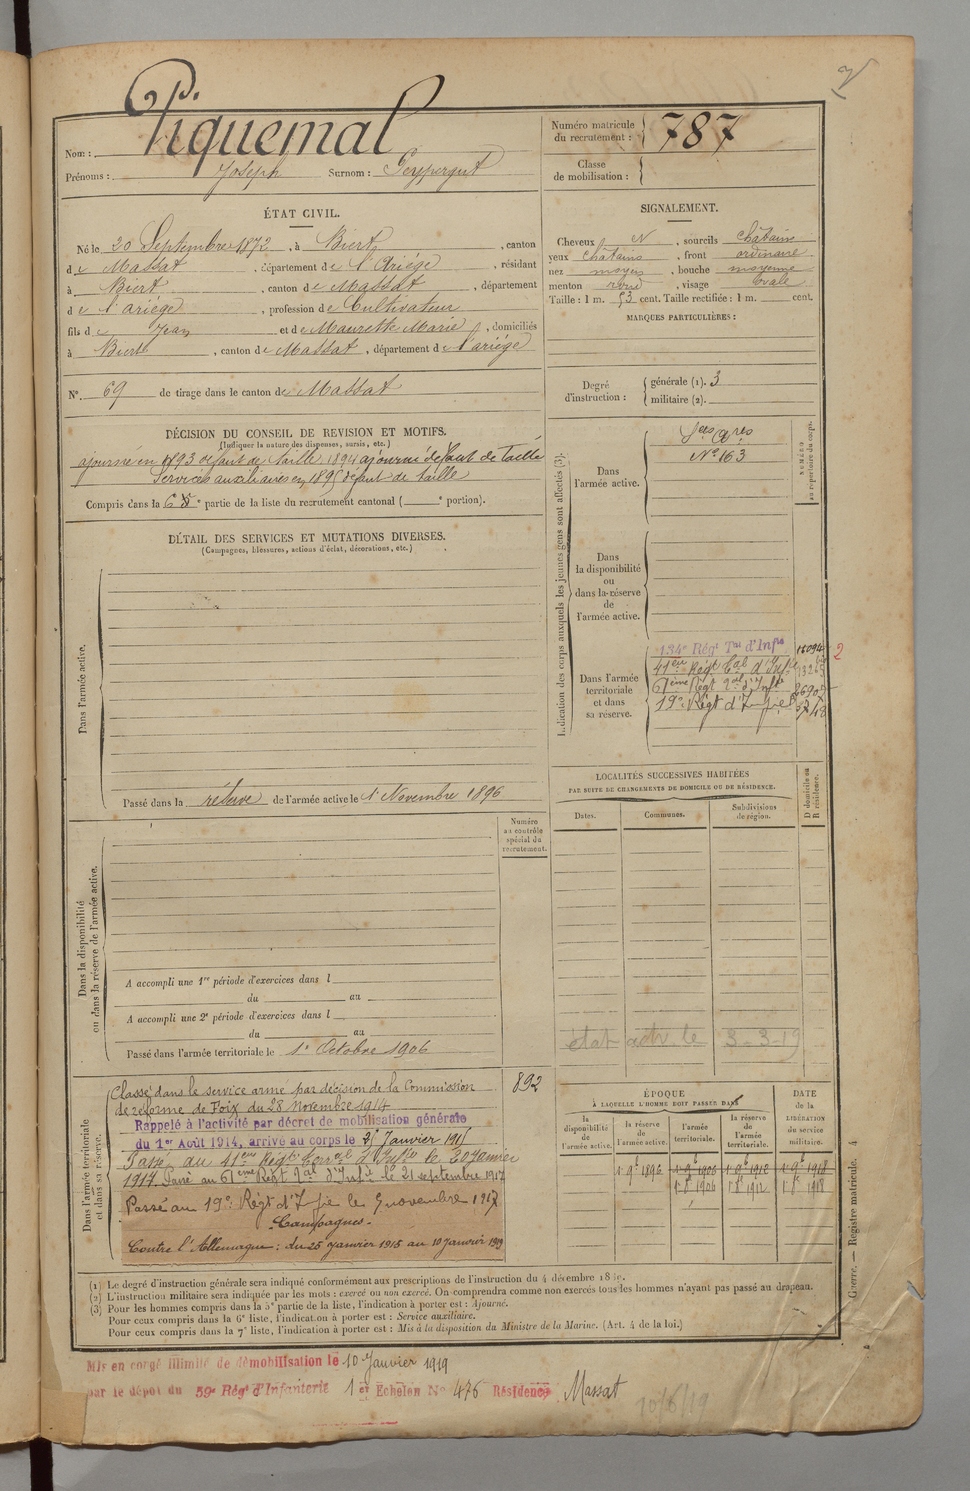 Nom : Piquemal
Prénoms : Joseph Surnom :
Numéro matricule du recrutement : 787
Classe de mobilisation :
ÉTAT CIVIL.
Né le 20 Septembre 1872, à Biert, canton
de Massat, département de l'Ariége, résidant
à Biert, canton de Massat, département
de l'ariége, profession de Cultivateur
fils de Jean et de Maurette Marie, domiciliés
à Biert, canton de Massat, département de l'ariége
N° 69 de tirage dans le canton de Massat
SIGNALEMENT.
Cheveux N, sourcils châtains
yeux châtains, front ordinaire
nez moyen, bouche moyenne
menton rond, visage Ovale
Taille : 1 m. 53 cent. Taille rectifiée : 1 m. cent.
MARQUES PARTICULIÈRES :
Degré d'instruction : générale (1). 3
militaire (2).
DÉCISION DU CONSEIL DE REVISION ET MOTIFS.
(Indiquer la nature des dispenses, sursis, etc.)
ajourné en 1893 défaut de taille 1894 ajourné défaut de taille
Services auxiliaires en 1895 défaut de taille
Compris dans la 6e partie de la liste du recrutement cantonal ( e portion).
DÉTAIL DES SERVICES ET MUTATIONS DIVERSES.
(Campagnes, blessures, actions d'éclat, décorations, etc.)
Dans l'armée active.
Passé dans la réserve de l'armée active le 1er Novembre 1896
Numéro au contrôle spécial du recrutement.
Dans la disponibilité ou dans la réserve de l'armée active.
A accompli une 1re période d'exercices dans l
du au
A accompli une 2e période d'exercices dans l
du au
Passé dans l'armée territoriale le 1er Octobre 1906
Dans l'armée territoriale et dans sa réserve.
892
Classé dans le service armé par décision de la Commission
de réforme de Foix du 28 novembre 1914
Rappelé à l'activité par décret de mobilisation générale
du 1er Août 1914, arrivé au corps le 25 Janvier 1915
Passé au 41ème Régt Terral d'Inftie le 20 Janvier
1917. Passé au 61ème Régt d'Inftie le 21 septembre 1917
Passé au 19e Régt d'Infie le 9 novembre 1917
Campagnes.
Contre l'Allemagne : du 25 janvier 1915 au 10 janvier 1919
Indication des corps auxquels les jeunes gens sont affectés (3).
NUMÉRO au répertoire du corps.
Dans l'armée active.
Ses Ares
N° 163
Dans la disponibilité ou dans la réserve de l'armée active.
Dans l'armée territoriale et dans sa réserve.
134e Régt Tal d'Infie
41ème Régt Tal d'Infie
61ème Régt d'Infie
19e Régt d'Infie
LOCALITÉS SUCCESSIVES HABITÉES
PAR SUITE DE CHANGEMENTS DE DOMICILE OU DE RÉSIDENCE.
Dates. Communes. Subdivisions de région. D domicile ou R résidence.
état adr. le 3-3-19
ÉPOQUE
À LAQUELLE L'HOMME DOIT PASSER DANS
DATE de la LIBÉRATION du service militaire.
la disponibilité de l'armée active. la réserve de l'armée active. l'armée territoriale. la réserve de l'armée territoriale.
1 9b 1896 1 9b 1906 1 9b 1912 1 9b 1918
1 8b 1906 1 8b 1912 1 8b 1918
Guerre. — Registre matricule. 4
(1) Le degré d'instruction générale sera indiqué conformément aux prescriptions de l'instruction du 4 décembre 1889.
(2) L'instruction militaire sera indiquée par les mots : exercé ou non exercé. On comprendra comme non exercés tous les hommes n'ayant pas passé au drapeau.
(3) Pour les hommes compris dans la 5e partie de la liste, l'indication à porter est : Ajourné.
Pour ceux compris dans la 6e liste, l'indication à porter est : Service auxiliaire.
Pour ceux compris dans la 7e liste, l'indication à porter est : Mis à la disposition du Ministre de la Marine. (Art. 4 de la loi.)
Mis en congé illimité de démobilisation le 10 Janvier 1919
par le dépôt du 59e Régt d'Infanterie 1er Echelon N° 476 Résidence Massat
10/6/19